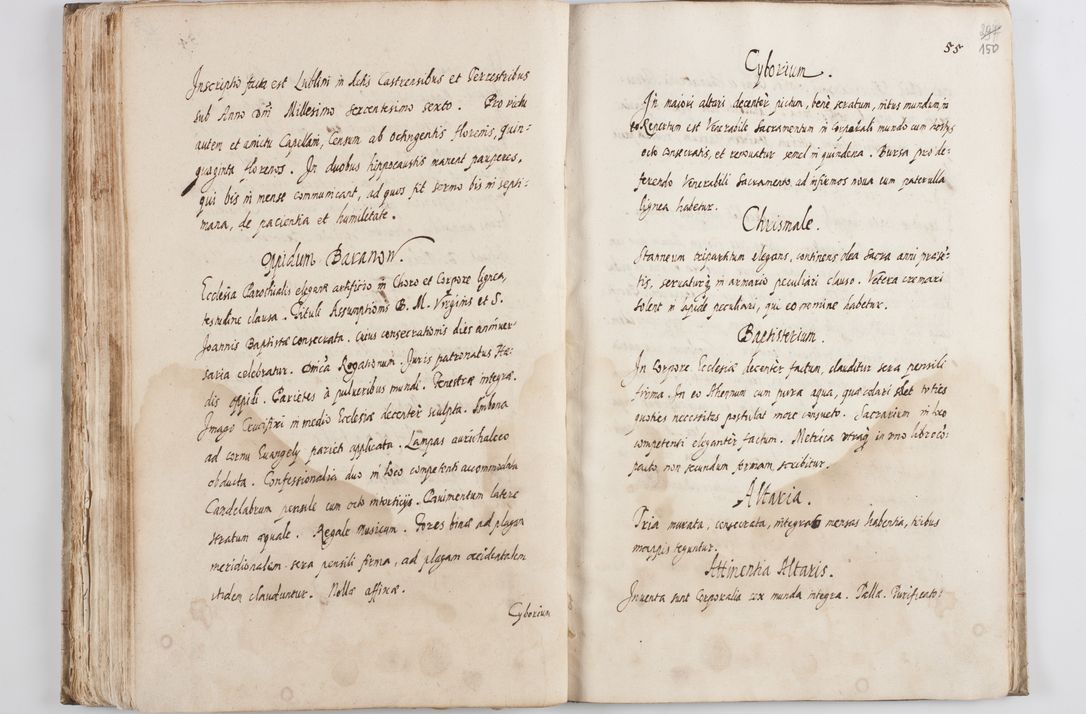 Inscriptio facta est Lublini in Actis Castrensibus et Terrestribus
sub Anno Dni Millesimo sexcentesimo sexto. Pro victu
autem et amictu Capellani, Censum ab octingentis florenis, quin=
quaginta florenos. In duobus hippocaustis manent pauperes,
qui bis in mense communicant, ad quos fit sermo bis in septi:
mana, de pacientia et humilitate.
Oppidum Baranow.
Ecclesia Parochialis eleganti artificio in Choro et Corpore lignea,
testudine clausa. Tituli Assumptionis B. M. Virginis et S.
Joannis Baptistæ consecrata. Cuius consecrationis dies anniuer
saria celebratur. Dnica Rogationum. Juris patronatus Hæ:
dis oppidi. Parietes à pulueribus mundi. Fenestræ integræ.
Imago Crucifixi in medio Ecclesiæ decenter sculpta. Ambona
ad cornu Euangely parieti applicata. Lampas aurichalceo
obducta. Confessionalia duo in loco competenti accommodata
Candelabrum pensile cum octo intorticijs. Pavimentum latere
stratum æquale. Regale Musicum. Fores binæ ad plagam
meridionalem sera pensili firma, ad plagam occidentalem
itidem clauduntur. Vallæ affixæ.
Cyborium
55
150
Cyborium.
In maiori altari decenter pictum, bene seratum, intus mundum, in
eo Renertum est Venerabile Sacramentum in corporali mundo cum hostijs
octo consecratis, et renouatur semel in quindena. Bursa pro de=
ferendo Venerabili Sacramento, ad infirmos noua cum paterulla
lignea habetur.
Chrismale.
Stanneum tripartitum elegans, continens olea sacra anni præse=
tis, seruaturq in armario peculiari clauso. Vetera cremari
solent in lapide peculiari, qui eo nomine habetur.
Baptisterium.
In Corpore Ecclesiæ decenter factum, clauditur sera pensili
firma. In eo Ahenum cum pura aqua, quæ colari solet toties
quoties necessitas postulat more consueto. Sacrarium in loco
competenti eleganter factum. Metrica utraq in uno libro có:
pacto, non secundum formam scribitur.
Altaria.
Tria murata, consecrata, integras mensas habentia, tribus
mappis teguntur.
Attinentia Altaris.
Inuenta sunt Corporalia sex munda integra. Pallæ. Purificator: